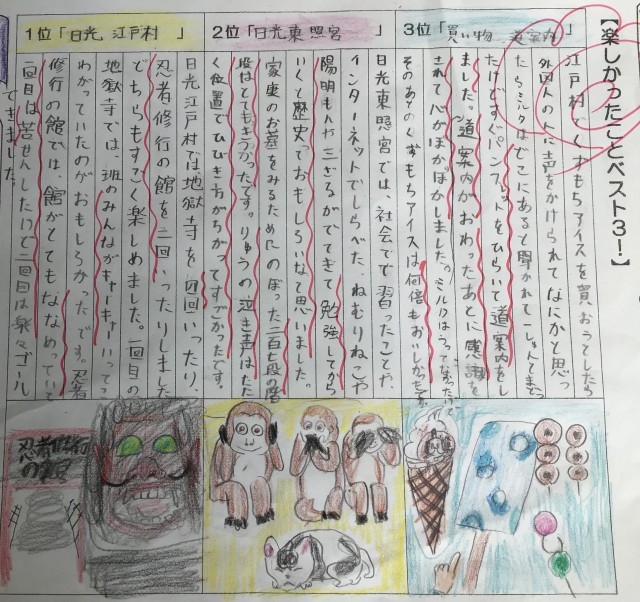 【楽しかったことベスト3！】
3位「買い物 道案内」
江戸村でくずもちアイスを買おうとしたら
外国人の人に声をかけられてなにかと思っ
たらミルクはどこにあると聞かれて一しゅんとまどっ
たけどすぐパンフレットをひらいて道案内をし
ました。道案内がおわったあとに感謝を
されて心がぽかぽかしました。ミルクはうってなかったけど
そのあとのくずもちアイスは何倍もおいしかったです
2位「日光東照宮」
日光東照宮では、社会でで習ったことや、
インターネットでしらべた、ねむりねこや
陽明もんや三ざるがでてきて勉強してから
いくと歴史っておもしろいなと思いました。
家康のお墓をみるためにのぼった二百七段の階
段はとてもきつかったです。りゅうの泣き声はたた
く位置でひびき方がちがってすごかったです。
1位「日光 江戸村」
日光江戸村では、地獄寺を四回いったり、
忍者修行の館を二回いったりしました
どちらもすごく楽しめました。一回目の
地獄寺では、班のみんながキャーキャーいってこ
わがっていたのがおもしろかったです。忍者
修行の館では、館がとてもななめっていて
一回目は苦せんしたけど二回目は楽々ゴール
できました。
忍者修行
の館